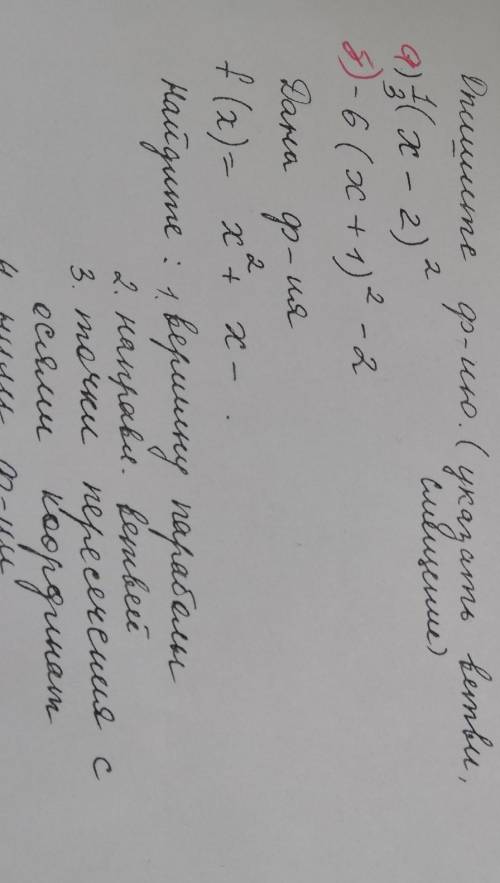 Опишите ф-ию. (указать ветви,
смещение)
а) 1/3 (x - 2)²
б) - 6 (x + 1)² - 2
Дана ф-ия
f(x) = x² + x - .
Найдите: 1. вершину параболы
2. направл. ветвей
3. точки пересечения с
осями координат
4. нули ф-ии